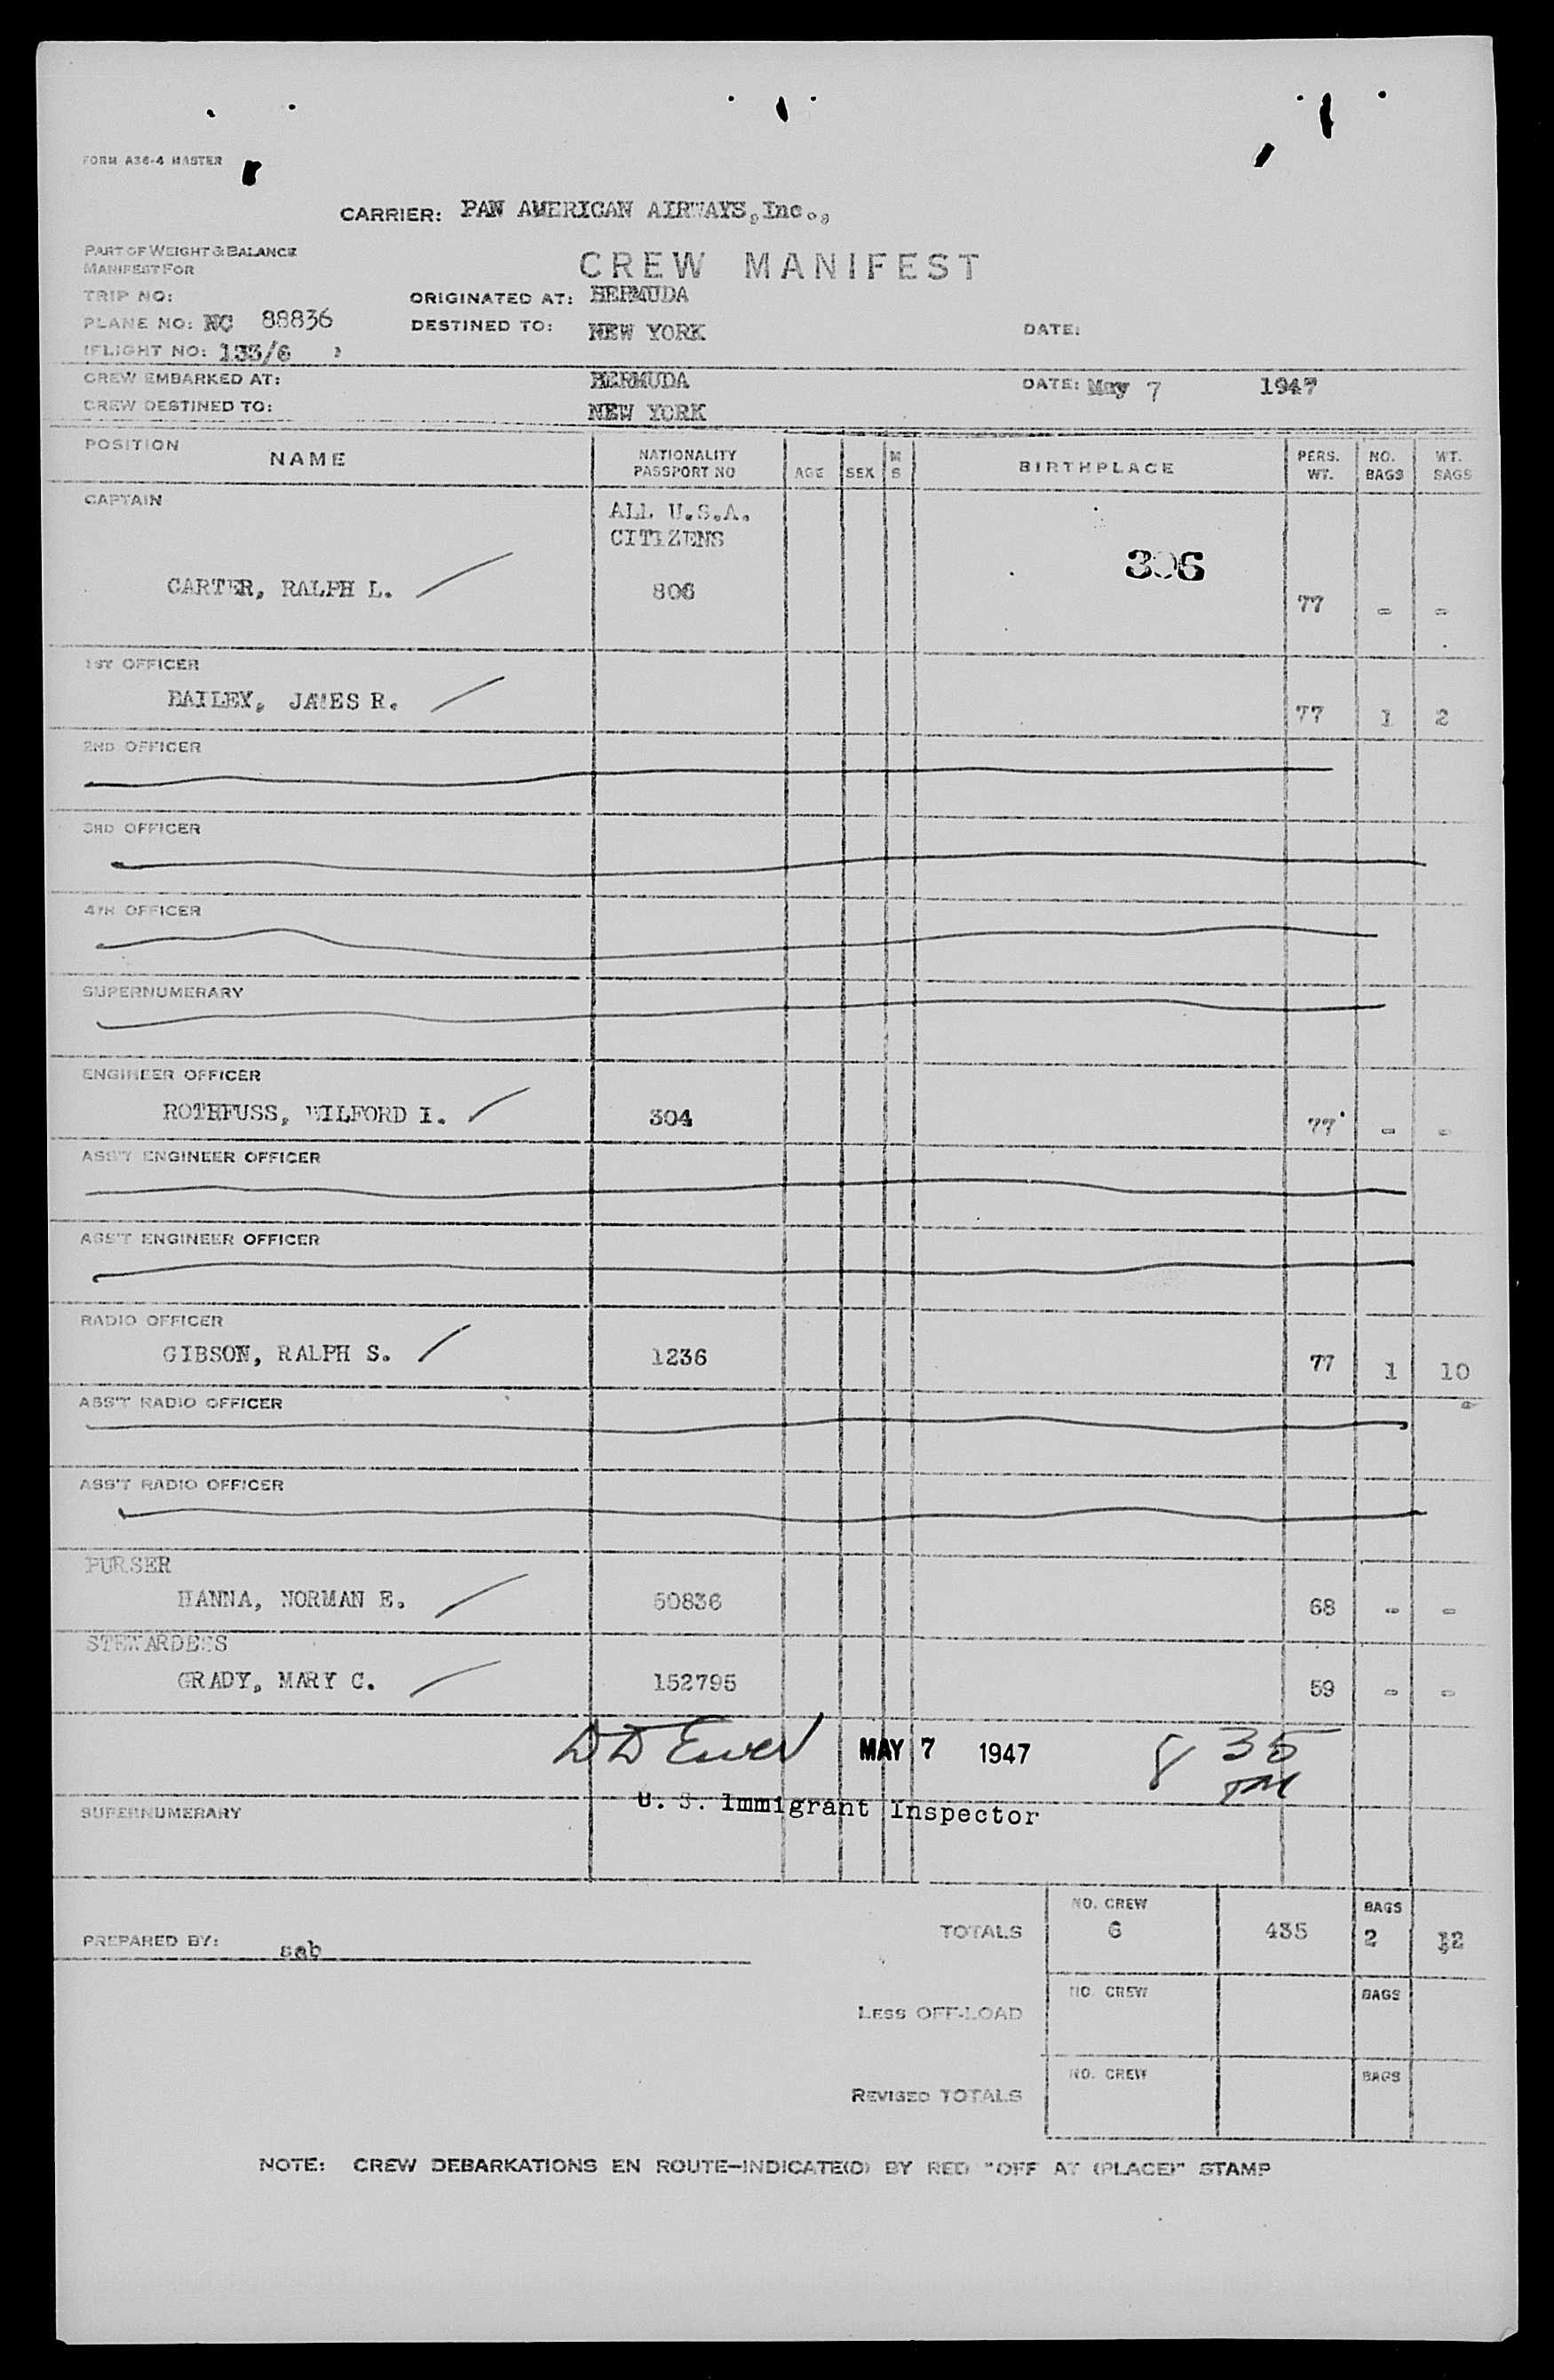 FORM A36-4 MASTER
CARRIER: PAN AMERICAN AIRWAYS, Inc.,
PART OF WEIGHT & BALANCE
MANIFEST FOR
CREW MANIFEST
TRIP NO:
ORIGINATED AT: BERMUDA
PLANE NO: NC 88836
DESTINED TO: NEW YORK
DATE:
FLIGHT NO: 133/6
CREW EMBARKED AT: BERMUDA
DATE: May 7 1947
CREW DESTINED TO: NEW YORK
POSITION NAME NATIONALITY PASSPORT NO AGE SEX M S BIRTHPLACE PERS. WT. NO. BAGS WT. BAGS
CAPTAIN
ALL U.S.A.
CITIZENS
306
CARTER, RALPH L. 806 77 - -
1ST OFFICER
BAILEY, JAMES R. 77 1 2
2ND OFFICER
3RD OFFICER
4TH OFFICER
SUPERNUMERARY
ENGINEER OFFICER
ROTHFUSS, WILFORD I. 304 77 - -
ASS'T ENGINEER OFFICER
ASS'T ENGINEER OFFICER
RADIO OFFICER
GIBSON, RALPH S. 1236 77 1 10
ASS'T RADIO OFFICER
ASS'T RADIO OFFICER
PURSER
HANNA, NORMAN E. 50836 68 - -
STEWARDESS
GRADY, MARY C. 152795 59 - -
MAY 7 1947 8 35
PM
U. S. Immigrant Inspector
SUPERNUMERARY
NO. CREW BAGS
TOTALS 6 435 2 12
PREPARED BY: sab
NO. CREW BAGS
LESS OFF-LOAD
NO. CREW BAGS
REVISED TOTALS
NOTE: CREW DEBARKATIONS EN ROUTE-INDICATE(D) BY RED "OFF AT (PLACE)" STAMP